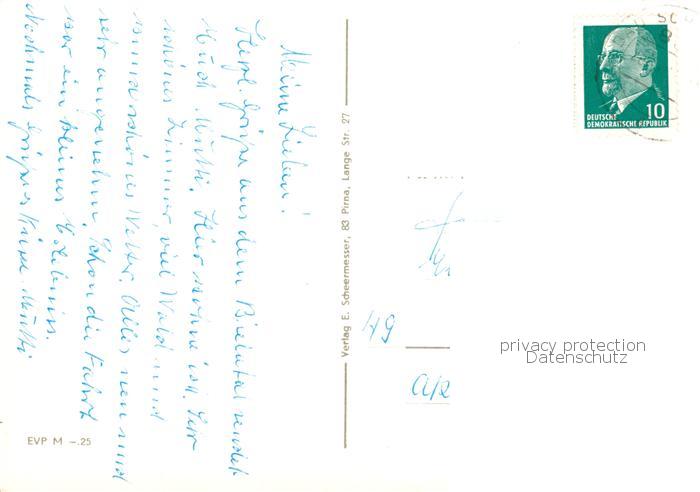 Meine Lieben!
Herzl. Grüße aus dem Bielatal sendet
Euch Mutti. Hier wohne ich. Sehr
schönes Zimmer, viel Wald und
wunderschönes Wetter. Alles neu und
sehr angenehm. Schon die Fahrt
war ein kleines Erlebnis.
Nochmals Grüße Mutti
EVP M –.25
Verlag E. Scheermesser, 83 Pirna, Lange Str. 27
10
DEUTSCHE
DEMOKRATISCHE REPUBLIK
49
privacy protection
Datenschutz